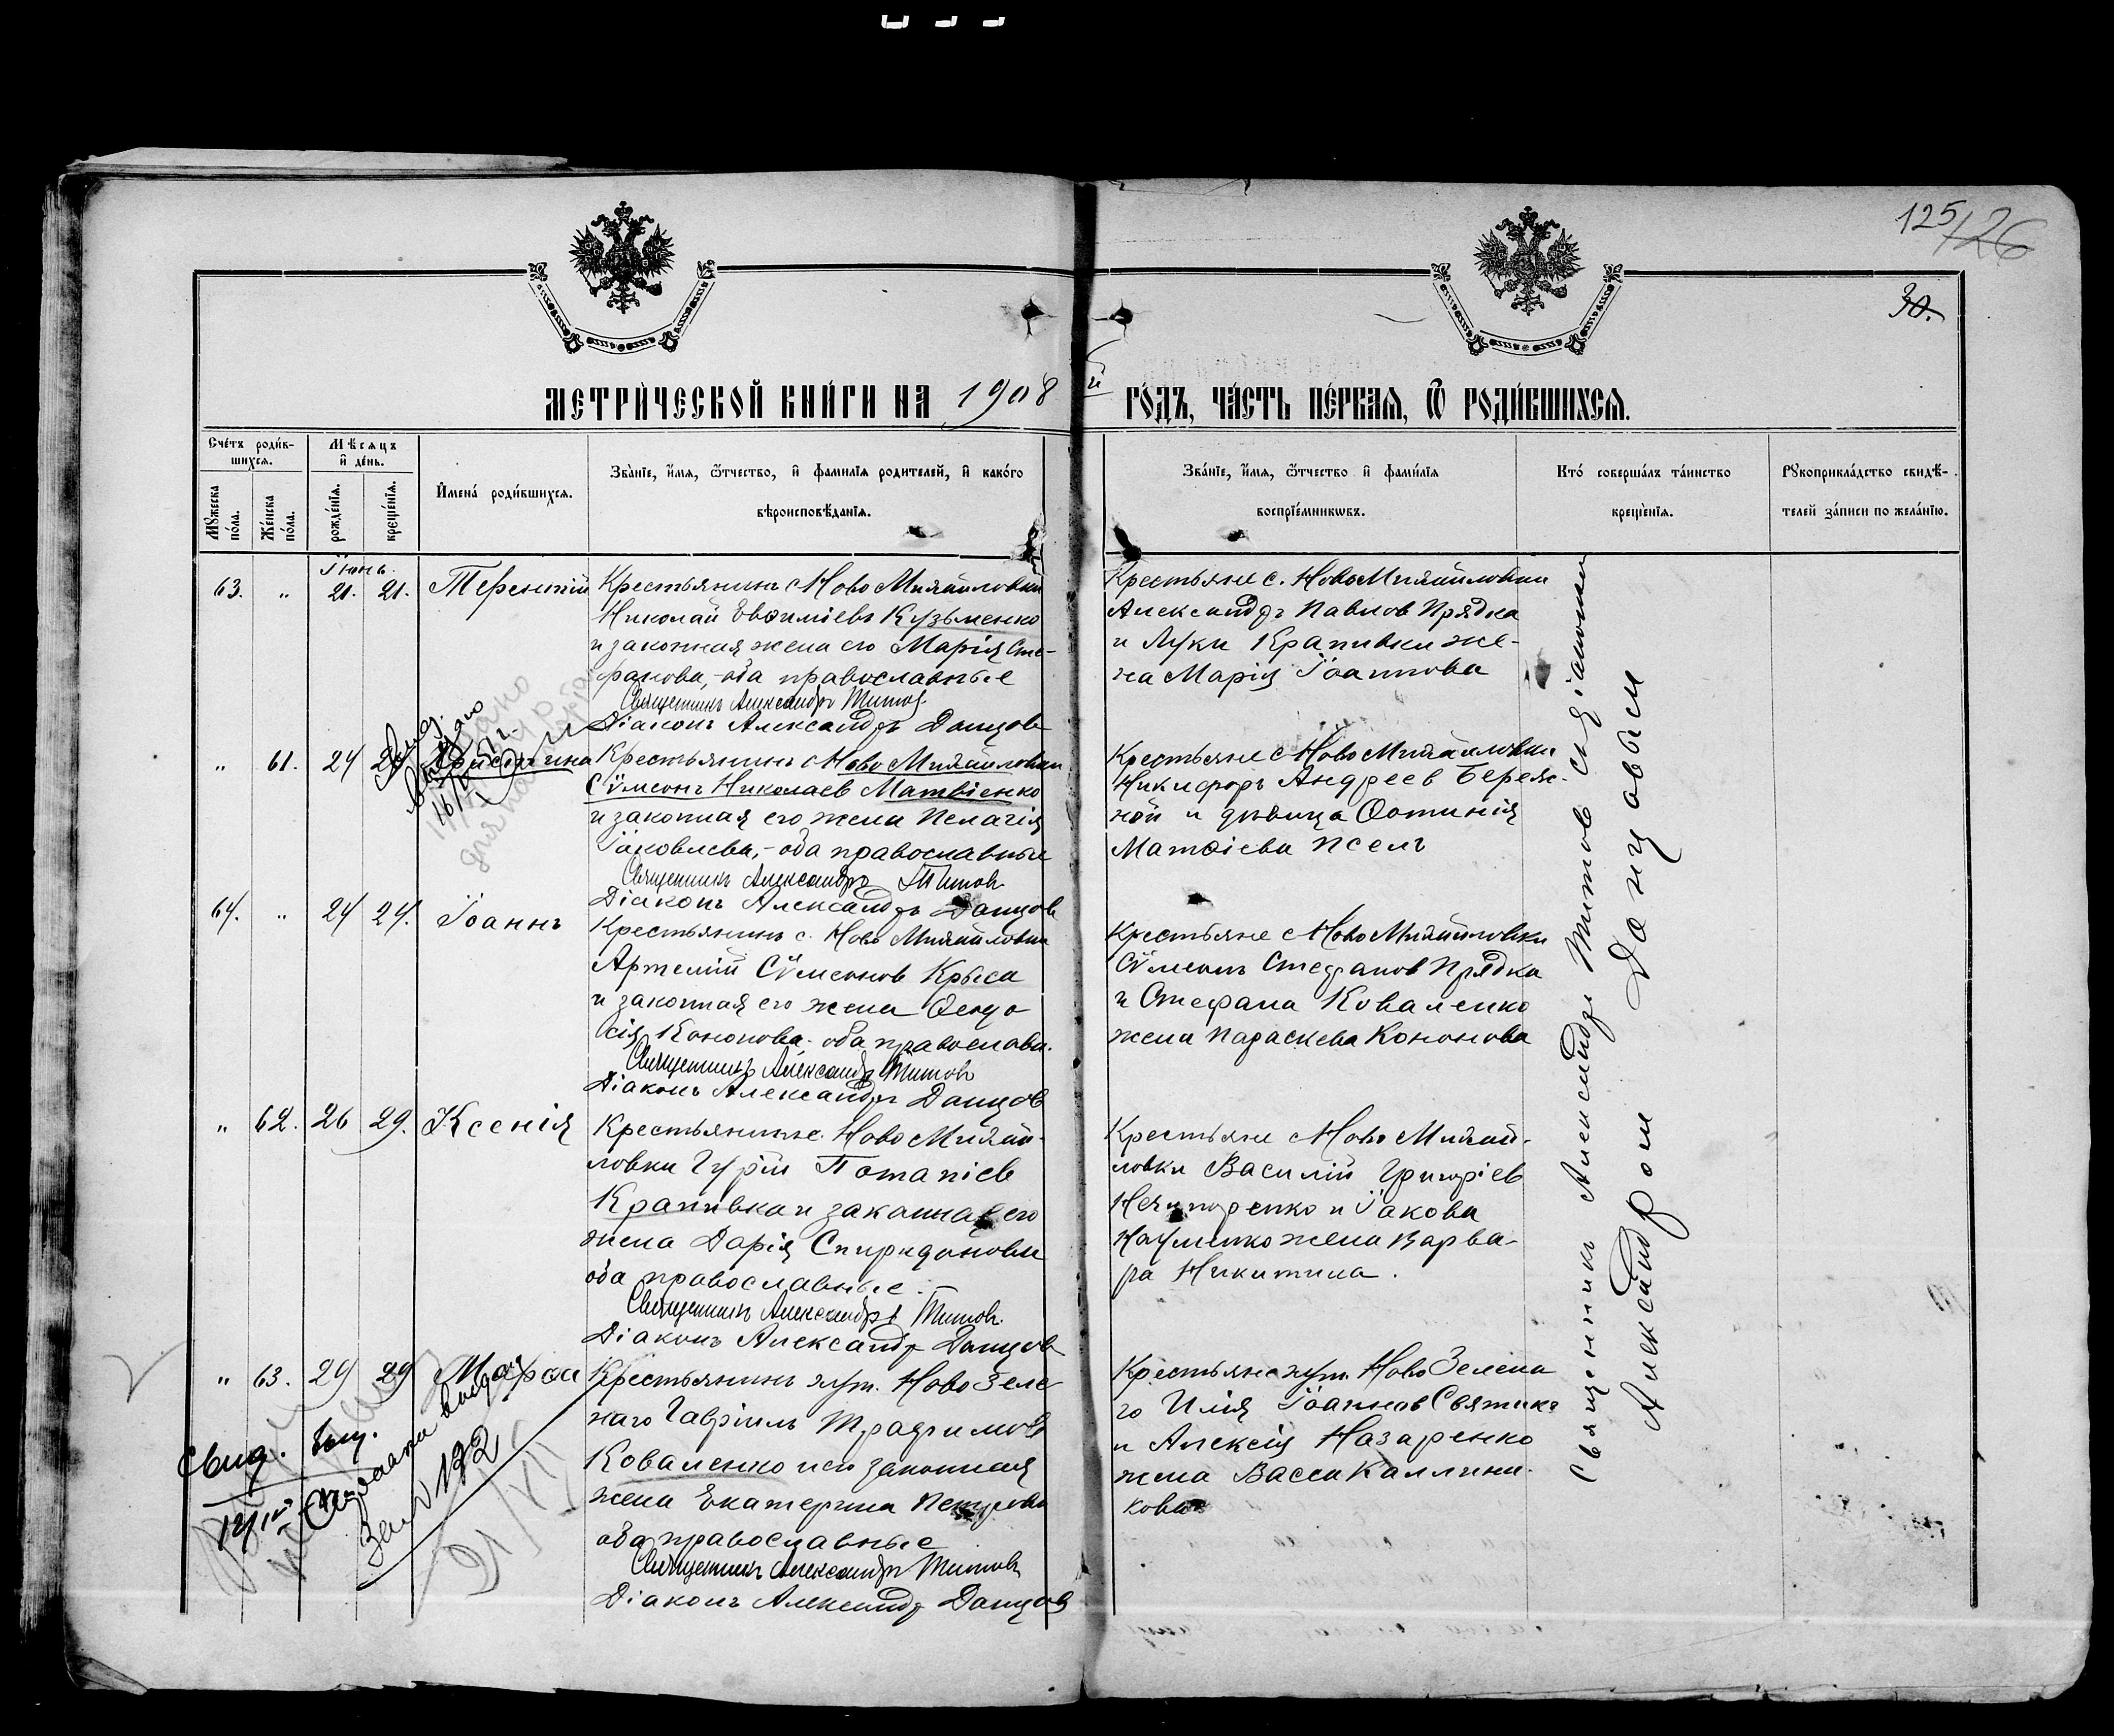 125/26
30.
МЕТРИЧЕСКОЙ КНИГИ НА 1908 й ГОДЪ, ЧАСТЬ ПЕРВАЯ, Ѿ РОДИВШИХСЯ.
Счетъ родившихся.
Мѣсяцъ и день.
Мужеска пола.
Женска пола.
рожденія.
крещенія.
Имена родившихся.
Званіе, имя, ѿтчество, и фамилія родителей, и какого вѣроисповѣданія.
Званіе, имя, ѿтчество и фамилія воспріемниковъ.
Кто совершалъ таинство крещенія.
Рукоприкладство свидѣтелей записи по желанію.
Іюнь.
63. " 21. 21. Терентій
Крестьянинъ с Ново Михайловки
Николай Евѳиміевъ Кузьменко
и законная жена его Марія Сте-
фанова, - оба православные
Священникъ Александръ Титов
Діаконъ Александръ Донцов
Крестьяне с. Ново Михайловки
Александръ Павлов Прядка
и Луки Крапивки же-
на Марія Іоаннова
" 61. 24
Крестьянинъ с Ново Михайловки
Сѵмеонъ Николаев Матвіенко
и законная его жена Пелагія
Іаковлева, - оба православные
Священникъ Александръ Титов
Діаконъ Александръ Донцов
Крестьяне с Ново Михайловки
Никифоръ Андреев Береж-
ной и дѣвица Фотинія
Матѳіева Псёлъ
64. " 24 24. Іоаннъ
Крестьянинъ с. Ново Михайловки
Артемій Сѵмеонов Крыса
и законная его жена Ѳеодо
сія Кононова - оба православн.
Священникъ Александръ Титовъ
Діаконъ Александръ Донцов
Крестьяне с Ново Михайловки
Сѵмеонъ Стефанов Прядка
и Стефана Коваленко
жена Параскева Кононова
" 62. 26 29. Ксенія
Крестьянинъ с. Ново Михай-
ловки Гурій Потапіев
Крапивка и законная его
жена Дарія Спиридонова
оба православные
Священникъ Александръ Титов.
Діаконъ Александр Донцов
Крестьяне с Ново Михай-
ловки Василій Григоріев
Нечипоренко и Іакова
Науменко жена Варва-
ра Никитина.
" 63. 29 29 Марѳа
Крестьянинъ хут. Ново Зеле
наго Гавріилъ Трофимов
Коваленко и его законная
жена Екатерина Петрова
оба православные
Священникъ Александръ Титовъ
Діаконъ Александр Донцов
Крестьяне хут. Ново Зелена
го Илія Іоаннов Святик
и Алексія Назаренко
жена Васса Каллини-
кова
Священникъ Александръ Титов с діакономъ
Александром Донцовым
Свид. выд.
Справка выдана
За № 192